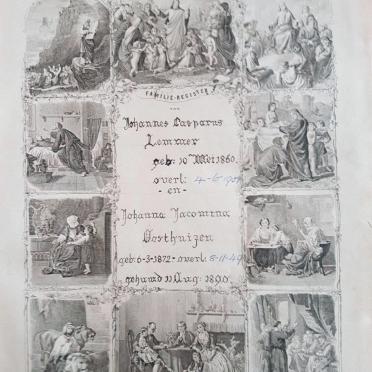 FAMILIE-REGISTER
VAN
Johannes Casparus
Lemmer
geb: 10 Mei 1860.
overl: 4-6-
-en-
Johanna Jacomina
Oosthuizen
geb: 6-3-1872 - overl: 8-11-49
gehuwd 11 Aug: 1890.